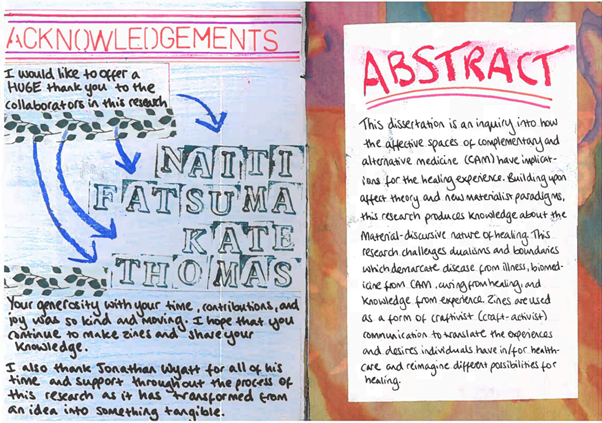 ACKNOWLEDGEMENTS
I would like to offer a
HUGE thank you to the
collaborators in this research
NAITI
FATSUMA
KATE
THOMAS
Your generosity with your time, contributions, and
joy was so kind and moving. I hope that you
continue to make zines and share your
knowledge.
I also thank Jonathan Wyatt for all of his
time and support throughout the process of
this research as it has transformed from
an idea into something tangible.
ABSTRACT
This dissertation is an inquiry into how
the affective spaces of complementary and
alternative medicine (CAM) have implicat-
ions for the healing experience. Building upon
affect theory and new materialist paradigms,
this research produces knowledge about the
material-discursive nature of healing. This
research challenges dualisms and boundaries
which demarcate disease from illness, biomed-
icine from CAM, curing from healing, and
knowledge from experience. Zines are used
as a form of craftivist (craft-activist)
communication to translate the experiences
and desires individuals have in/for health-
care and reimagine different possibilities for
healing.